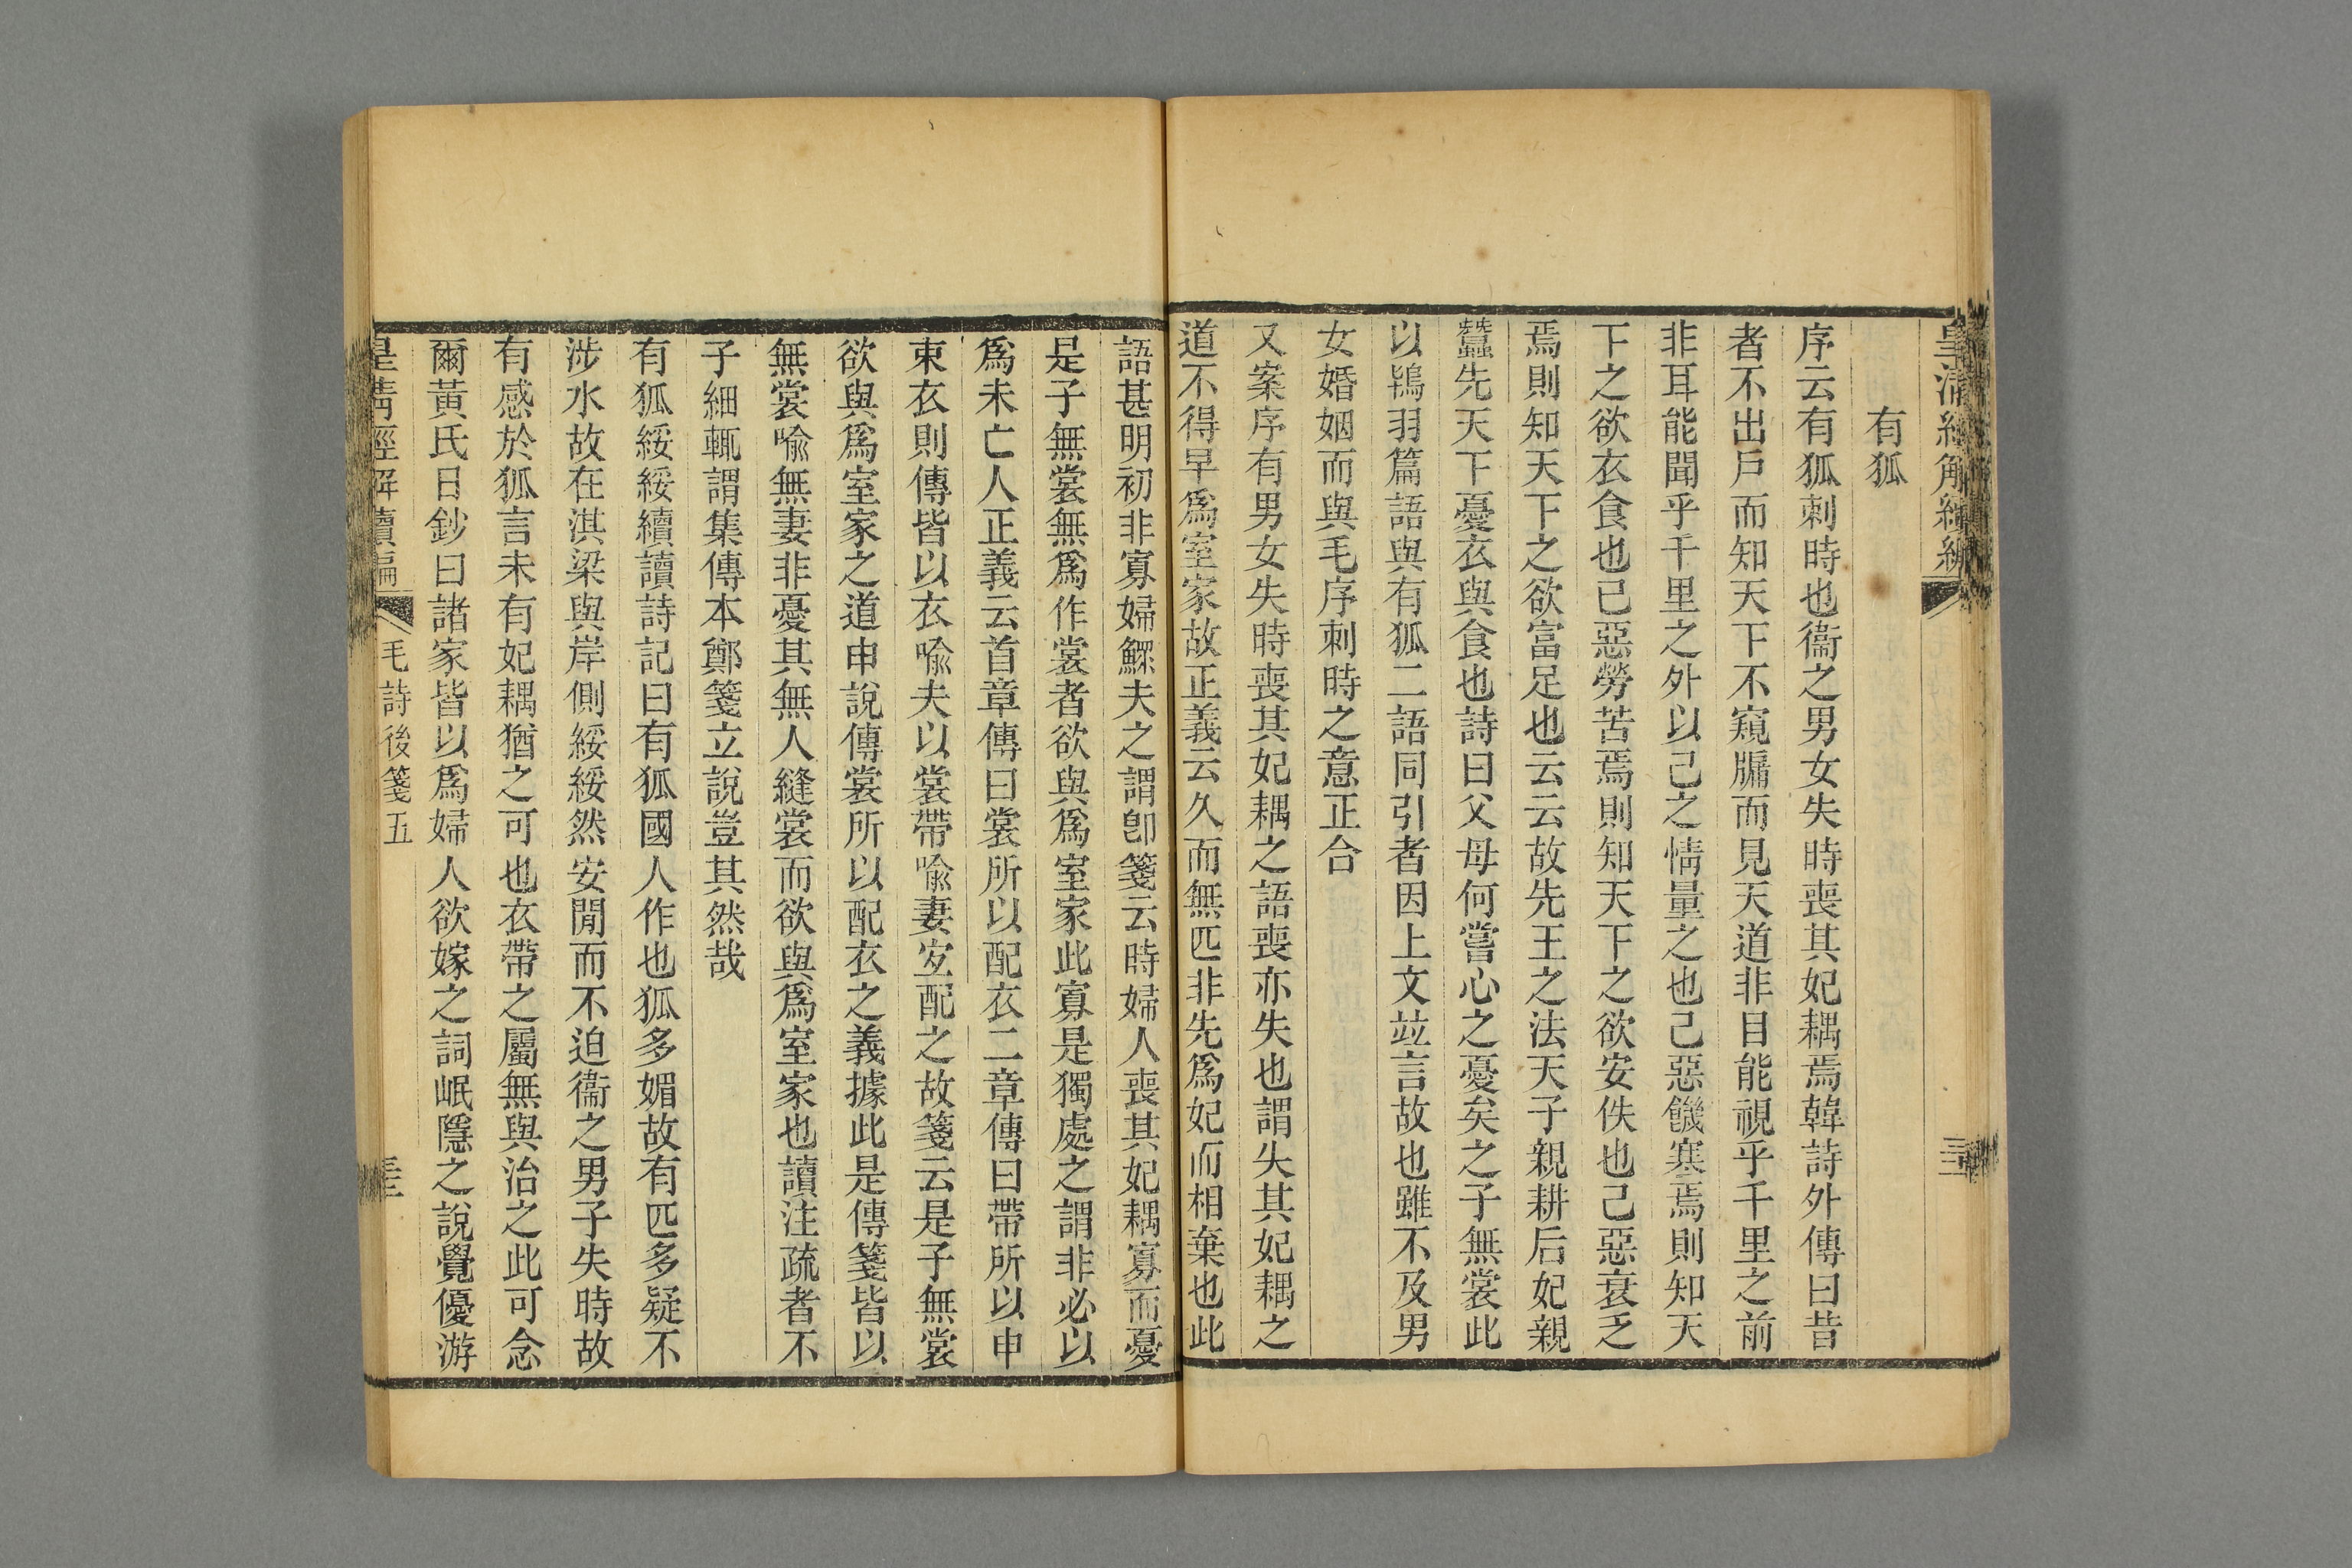 有狐
序云有狐刺時也衞之男女失時喪其妃耦焉韓詩外傳曰昔
者不出戶而知天下不窺牖而見天道非目能視乎千里之前
非耳能聞乎千里之外以己之情量之也己惡饑寒焉則知天
下之欲衣食也己惡勞苦焉則知天下之欲安佚也己惡衰乏
焉則知天下之欲富足也云云故先王之法天子親耕后妃親
蠶先天下憂衣與食也詩曰父母何嘗心之憂矣之子無裳此
以鴇羽篇語與有狐二語同引者因上文竝言故也雖不及男
女婚姻而與毛序刺時之意正合
又案序有男女失時喪其妃耦之語喪亦失也謂失其妃耦之
道不得早爲室家故正義云久而無匹非先爲妃而相棄也此
語甚明初非寡婦鰥夫之謂卽箋云時婦人喪其妃耦寡而憂
是子無裳無爲作裳者欲與爲室家此寡是獨處之謂非必以
爲未亡人正義云首章傳曰裳所以配衣二章傳曰帶所以申
束衣則傳皆以衣喩夫以裳帶喩妻宐配之故箋云是子無裳
欲與爲室家之道申說傳裳所以配衣之義據此是傳箋皆以
無裳喩無妻非憂其無人縫裳而欲與爲室家也讀注疏者不
子細輒謂集傳本鄭箋立說豈其然哉
有狐綏綏續讀詩記曰有狐國人作也狐多媚故有匹多疑不
涉水故在淇梁與岸側綏綏然安閒而不迫衞之男子失時故
有感於狐言未有妃耦猶之可也衣帶之屬無與治之此可念
爾黃氏日鈔曰諸家皆以爲婦人欲嫁之詞岷隱之說覺優游
皇淸經解續編
毛詩後箋五